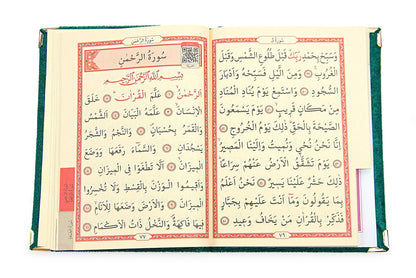 سُورَةُ قٓ
وَسَبِّحْ بِحَمْدِ رَبِّكَ قَبْلَ طُلُوعِ الشَّمْسِ وَقَبْلَ
الْغُرُوبِ ۞ وَمِنَ الَّيْلِ فَسَبِّحْهُ وَاَدْبَارَ
السُّجُودِ ۞ وَاسْتَمِعْ يَوْمَ يُنَادِ الْمُنَادِ
مِنْ مَكَانٍ قَرِيبٍ ۞ يَوْمَ يَسْمَعُونَ
الصَّيْحَةَ بِالْحَقِّ ذٰلِكَ يَوْمُ الْخُرُوجِ ۞
اِنَّا نَحْنُ نُحْيِ وَنُمِيتُ وَاِلَيْنَا الْمَصِيرُ
۞ يَوْمَ تَشَقَّقُ الْاَرْضُ عَنْهُمْ سِرَاعًا
ذٰلِكَ حَشْرٌ عَلَيْنَا يَسِيرٌ ۞ نَحْنُ اَعْلَمُ
بِمَا يَقُولُونَ وَمَا اَنْتَ عَلَيْهِمْ بِجَبَّارٍ
فَذَكِّرْ بِالْقُرْاٰنِ مَنْ يَخَافُ وَعِيدِ ۞
٧٦
سُورَةُ الرَّحْمٰنِ
سُورَةُ الرَّحْمٰنِ
بِسْمِ اللّٰهِ الرَّحْمٰنِ الرَّحِيمِ
اَلرَّحْمٰنُ ۞ عَلَّمَ الْقُرْاٰنَ ۞ خَلَقَ
الْاِنْسَانَ ۞ عَلَّمَهُ الْبَيَانَ ۞ اَلشَّمْسُ
وَالْقَمَرُ بِحُسْبَانٍ ۞ وَالنَّجْمُ وَالشَّجَرُ
يَسْجُدَانِ ۞ وَالسَّمَاءَ رَفَعَهَا وَوَضَعَ
الْمِيزَانَ ۞ اَلَّا تَطْغَوْا فِي الْمِيزَانِ ۞
وَاَقِيمُوا الْوَزْنَ بِالْقِسْطِ وَلَا تُخْسِرُوا
الْمِيزَانَ ۞ وَالْاَرْضَ وَضَعَهَا لِلْاَنَامِ ۞
فِيهَا فَاكِهَةٌ وَالنَّخْلُ ذَاتُ الْاَكْمَامِ ۞
٧٧